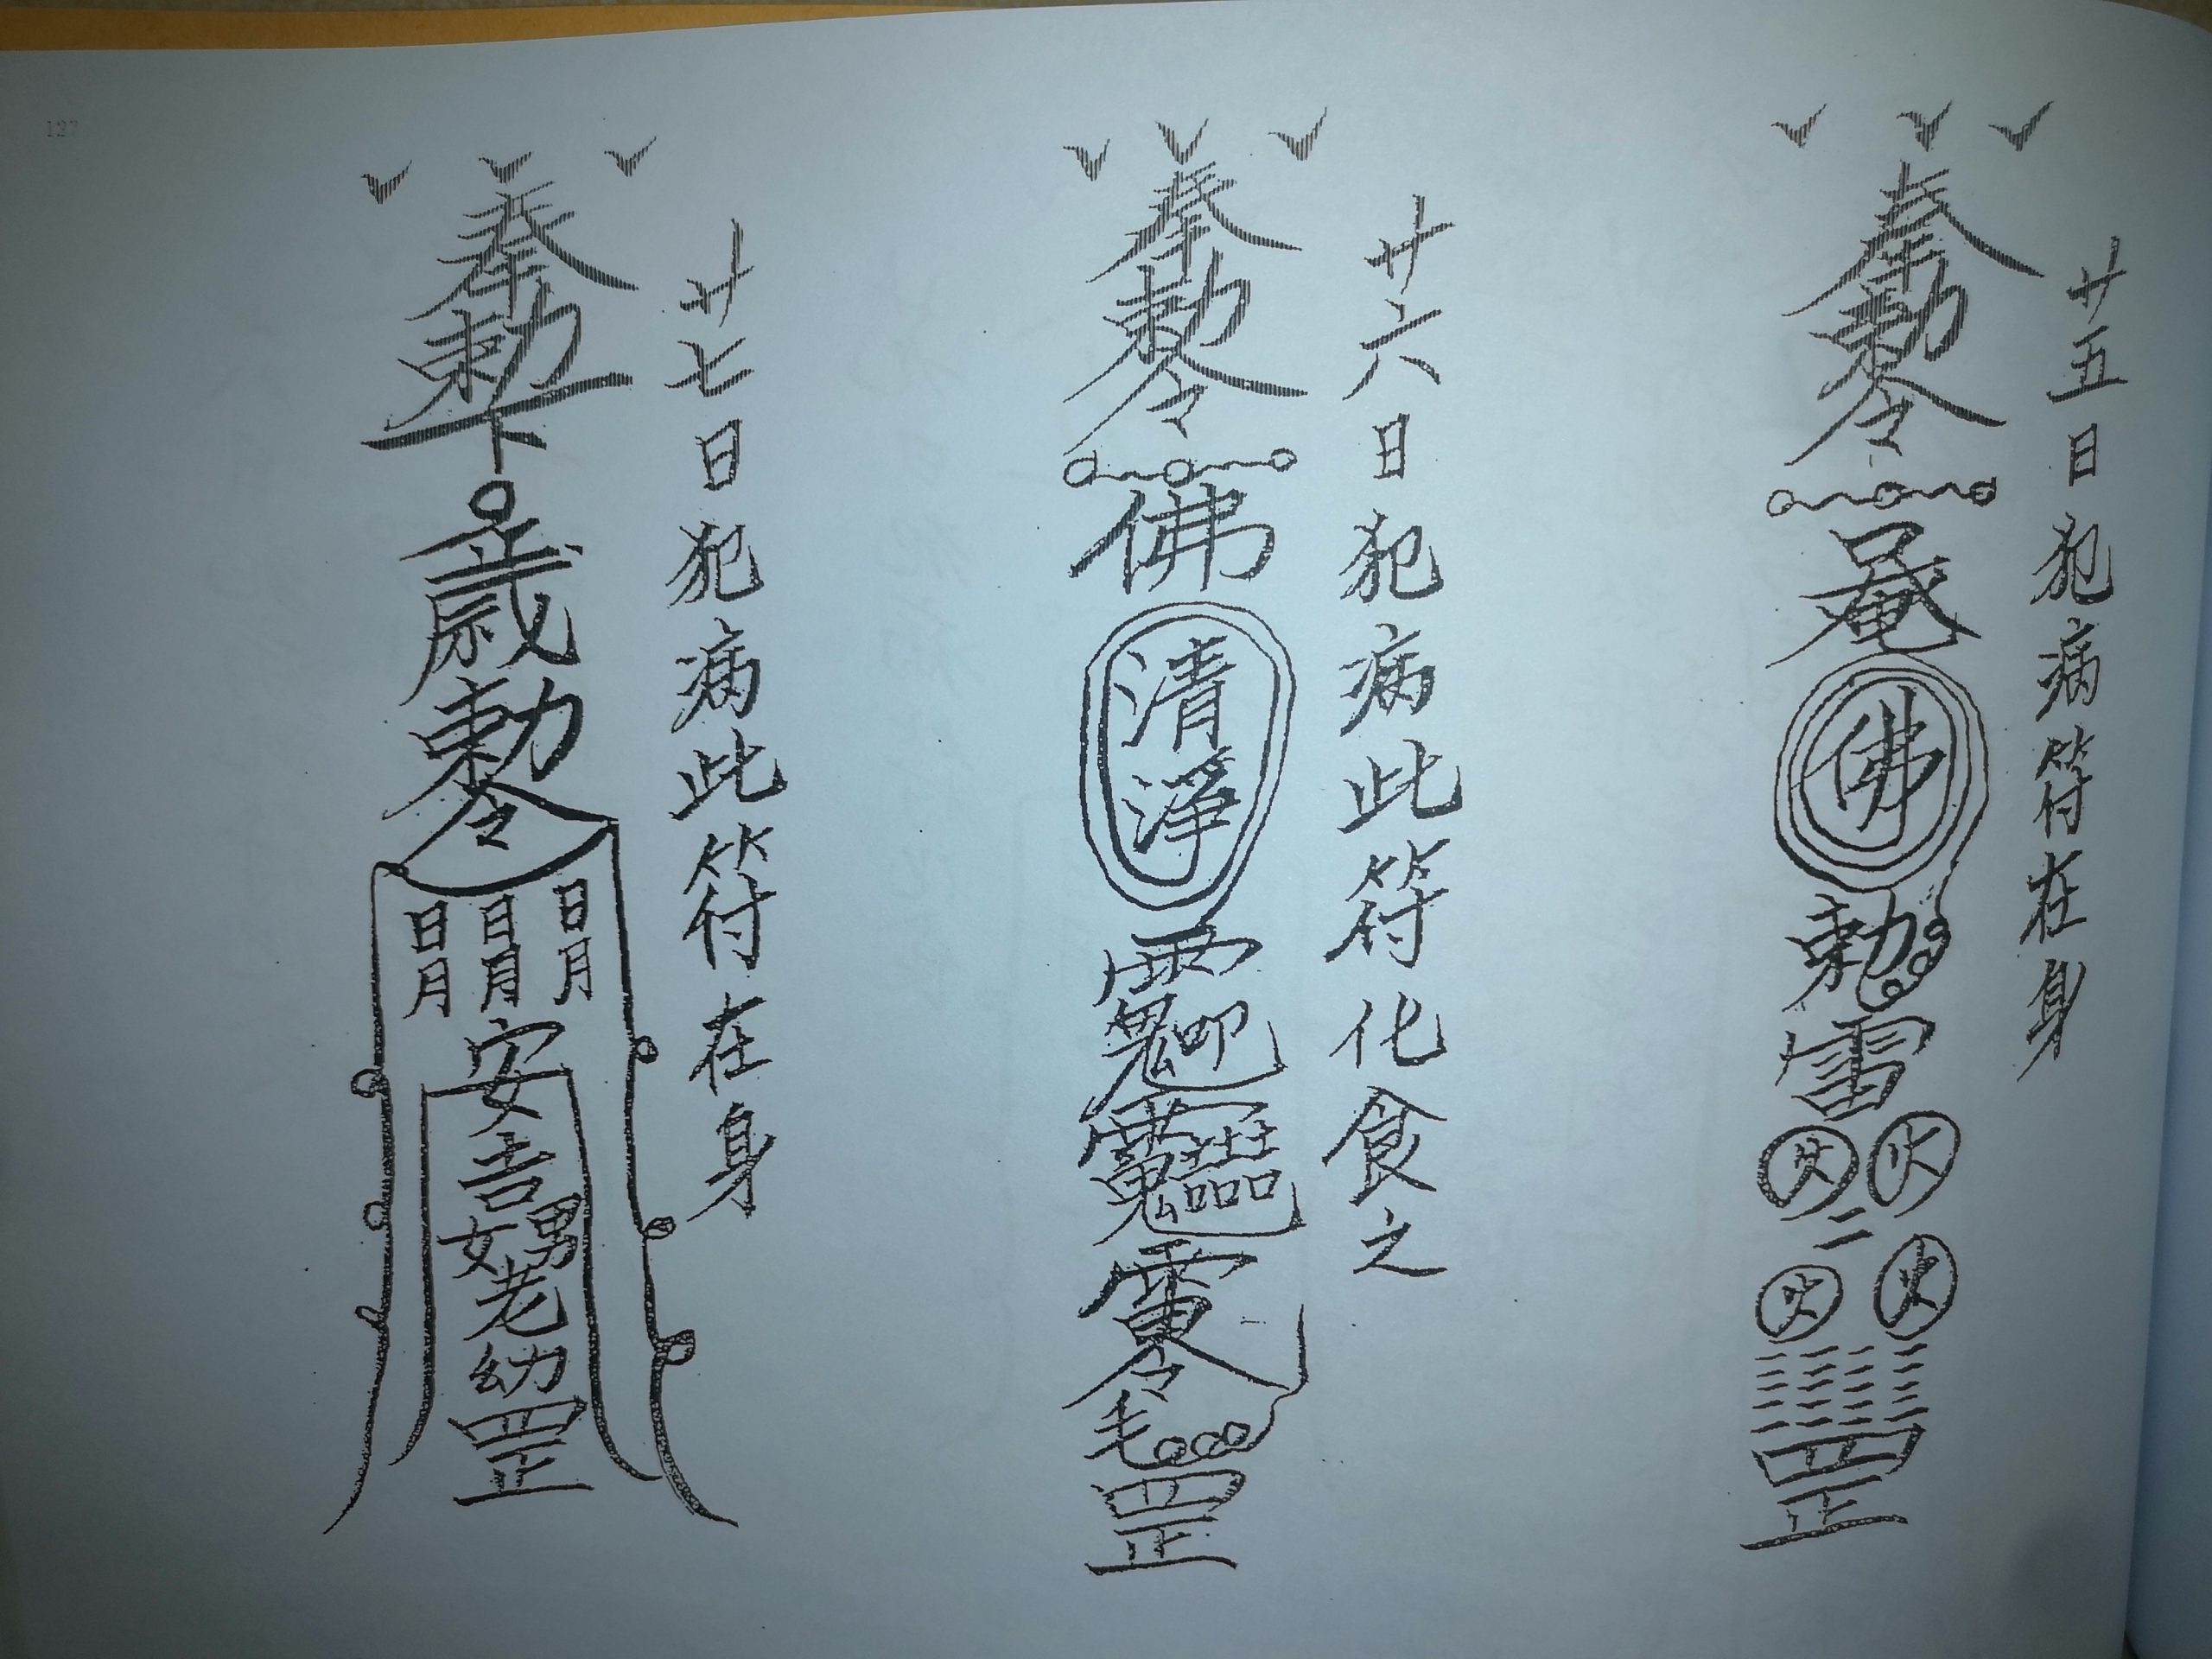 127
廿五日犯病符在身
奉勅令
唵
佛
勅
雷
火火
火火
罡
廿六日犯病此符化食之
奉勅令
佛
清淨
罡
廿七日犯病此符在身
奉勅下
歲
勅令
日月 日月 日月
安
吉
女男
老
幼
罡